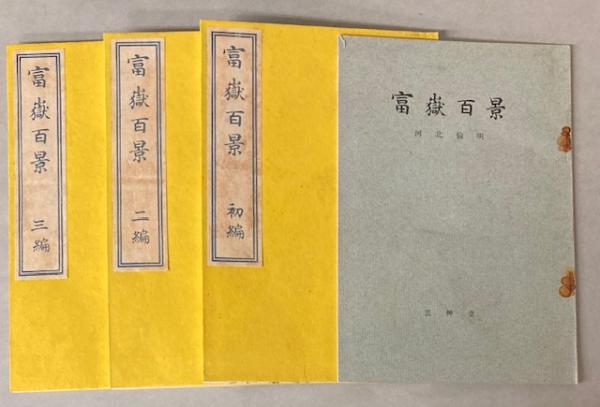 富嶽百景
河北倫明
芸艸堂
富嶽百景 初編
富嶽百景 二編
富嶽百景 三編